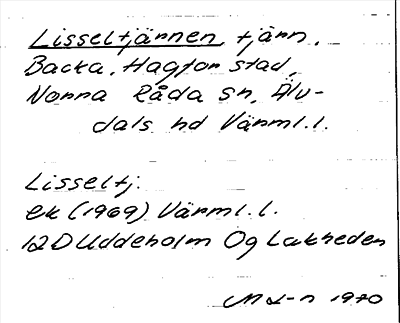 Lisseltjärnen, tjärn,
Backa, Hagfors stad,
Norra Råda sn, Älv-
dals hd Värml.l.
Lisseltj.
ek (1969) Värml.l.
12D Uddeholm Og Lakheden
M L-n 1970